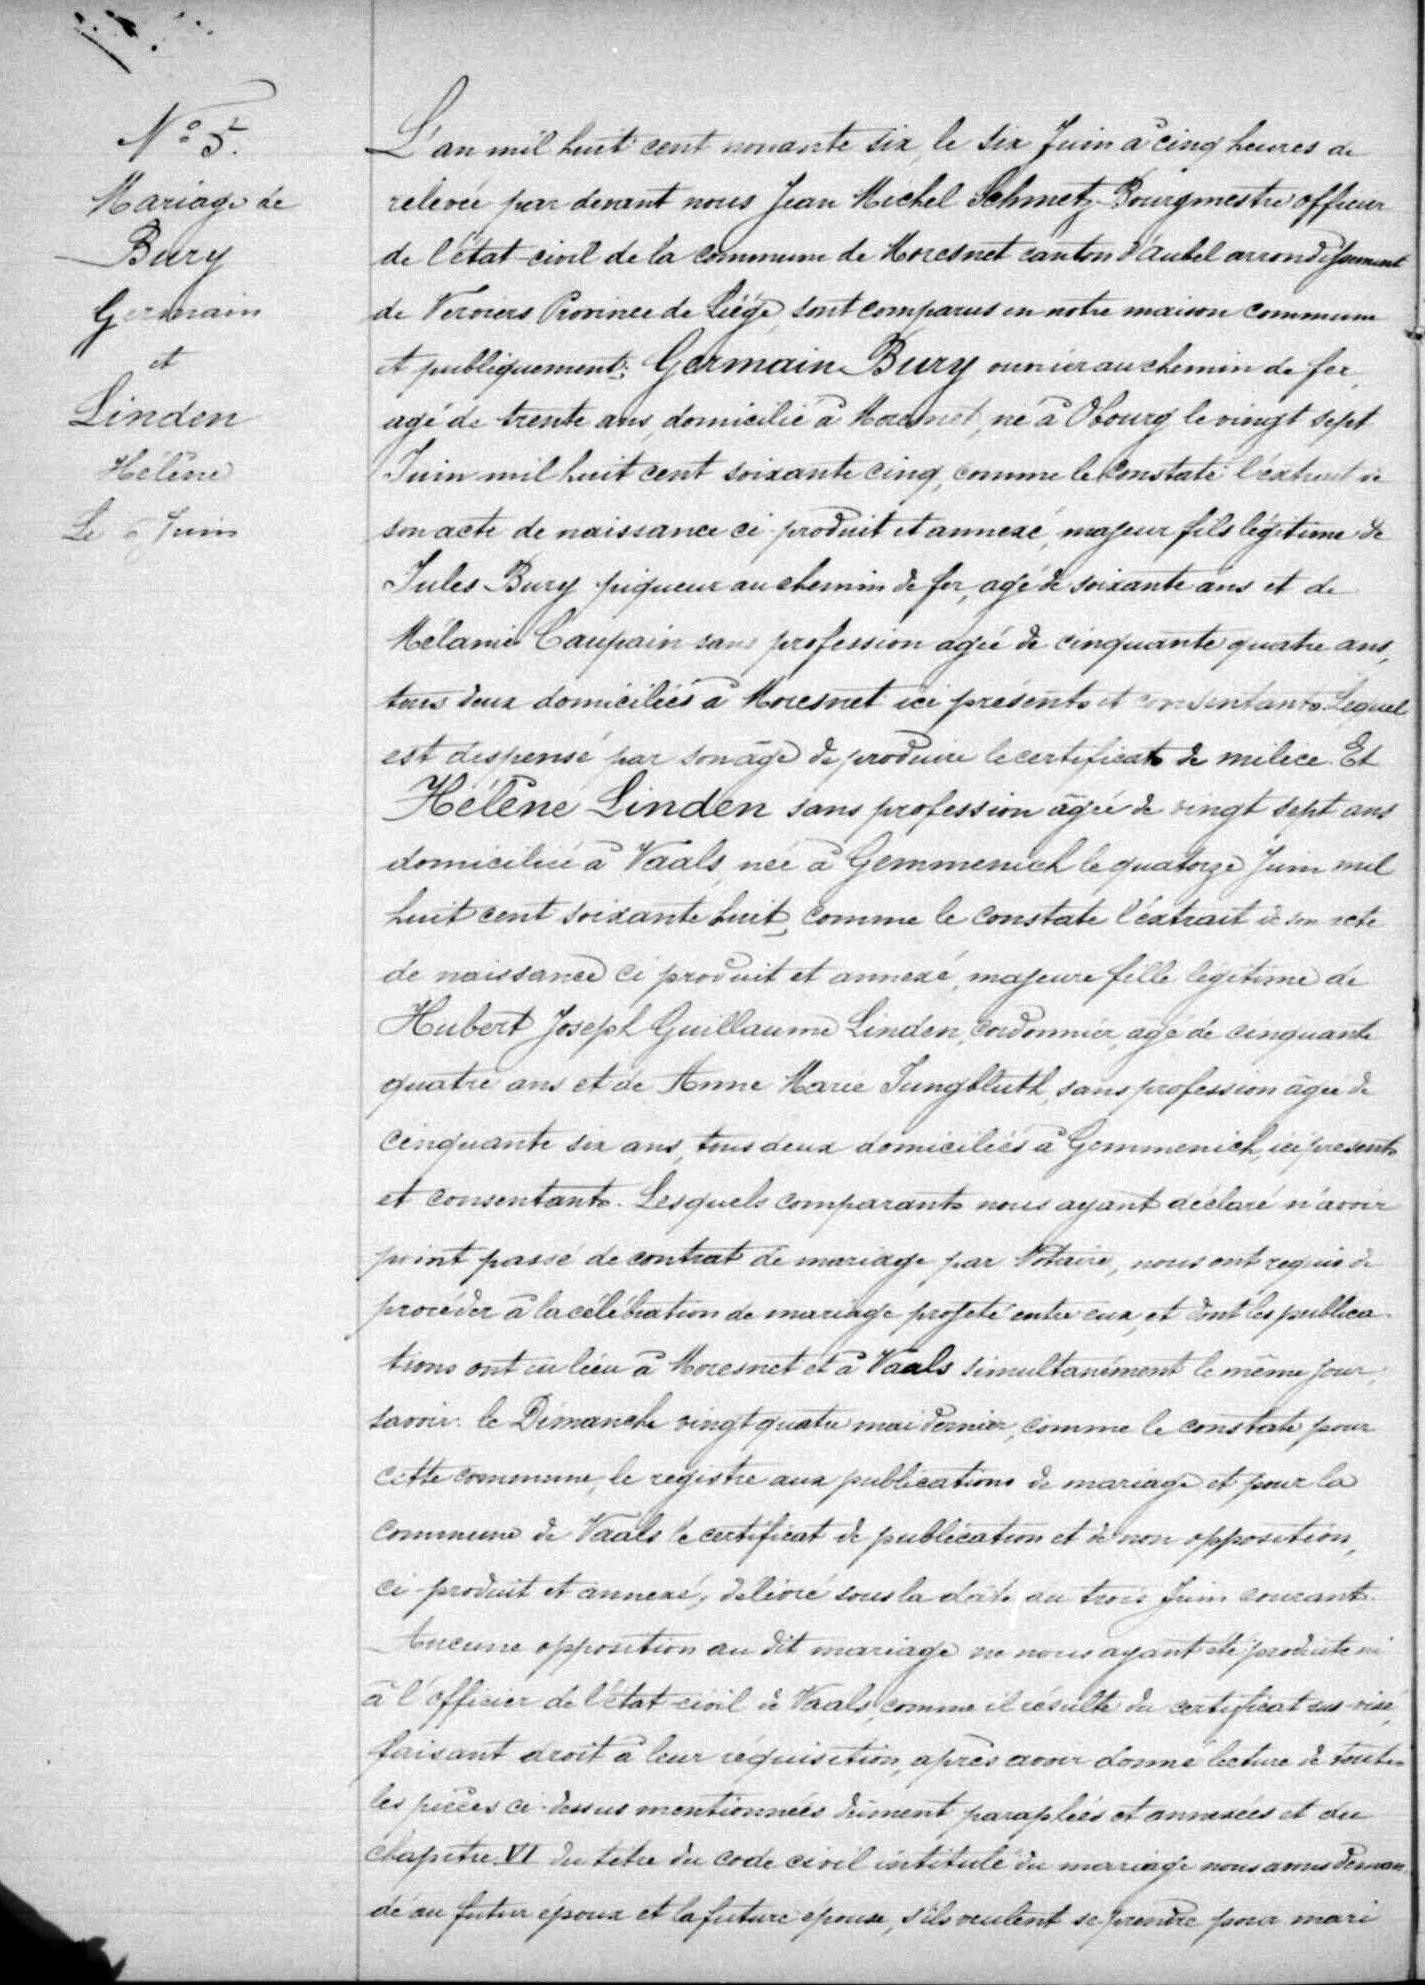 N° 5.
Mariage de
Bury
Germain
et
Linden
Hélène
Le 6 Juin
L'an mil huit cent nonante six, le six Juin à cinq heures de
relevée par devant nous Jean Michel Schmetz Bourgmestre officier
de l'état-civil de la commune de Moresnet canton d'Aubel arrondissement
de Verviers Province de Liége, sont comparus en notre maison commune
et publiquement: Germain Bury ouvrier au chemin de fer,
agé de trente ans, domicilié à Moresnet, né à Obourg le vingt sept
Juin mil huit cent soixante cinq, comme le constate l'extrait de
son acte de naissance ci-produit et annexé, majeur fils légitime de
Jules Bury piqueur au chemin de fer, agé de soixante ans et de
Mélanie Caupain sans profession agée de cinquante quatre ans,
tous deux domiciliés à Moresnet ici présents et consentants. Lequel
est dispensé par son âge de produire le certificat de milice. Et
Hélène Linden sans profession âgée de vingt sept ans
domiciliée à Vaals, née à Gemmenich le quatorze Juin mil
huit cent soixante huit, comme le constate l'extrait de son acte
de naissance ci produit et annexé, majeure fille légitime de
Hubert Joseph Guillaume Linden, cordonnier, agé de cinquante
quatre ans et de Anne Marie Jungbluth, sans profession âgée de
cinquante six ans, tous deux domiciliés à Gemmenich, ici présents
et consentants. Lesquels comparants nous ayant déclaré n'avoir
point passé de contrat de mariage par Notaire, nous ont requis de
procéder à la célébration de mariage projeté entre eux, et dont les publica-
tions ont eu lieu à Moresnet et à Vaals simultanément le même jour,
savoir: le Dimanche vingt quatre mai dernier, comme le constate pour
cette commune, le registre aux publications de mariage et pour la
commune de Vaals le certificat de publication et de non opposition,
ci-produit et annexé, délivré sous la date du trois Juin courant.
Aucune opposition au dit mariage ne nous ayant été produite ni
à l'officier de l'état-civil de Vaals, comme il résulte du certificat sus-visé,
faisant droit à leur réquisition, après avoir donné lecture de toutes
les pièces ci-dessus mentionnées dûment paraphées et annexées et du
chapitre VI du titre du code civil intitulé du mariage nous avons deman-
dé au futur époux et la future épouse, s'ils veulent se prendre pour mari